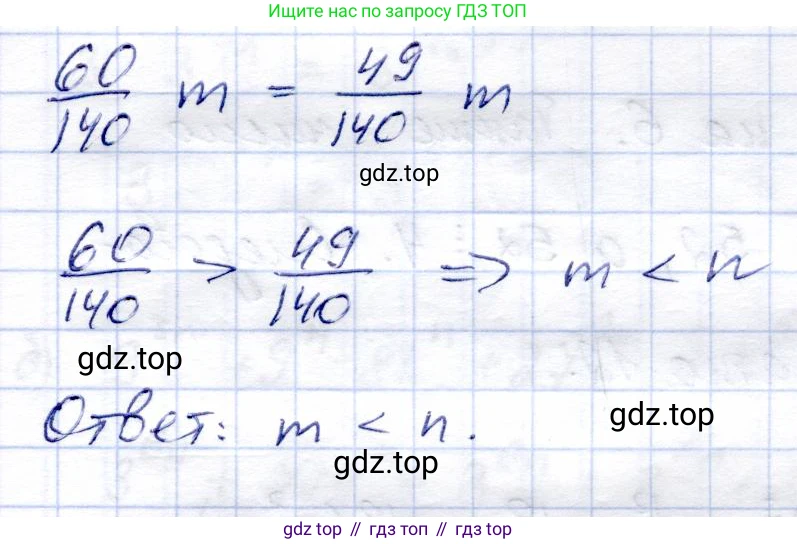 Ищите нас по запросу ГДЗ ТОП
60/140 m = 49/140 m
gdz.top
60/140 > 49/140 => m < n
gdz.top
Ответ: m < n.
gdz.top
gdz.top
gdz.top // гдз топ // gdz top